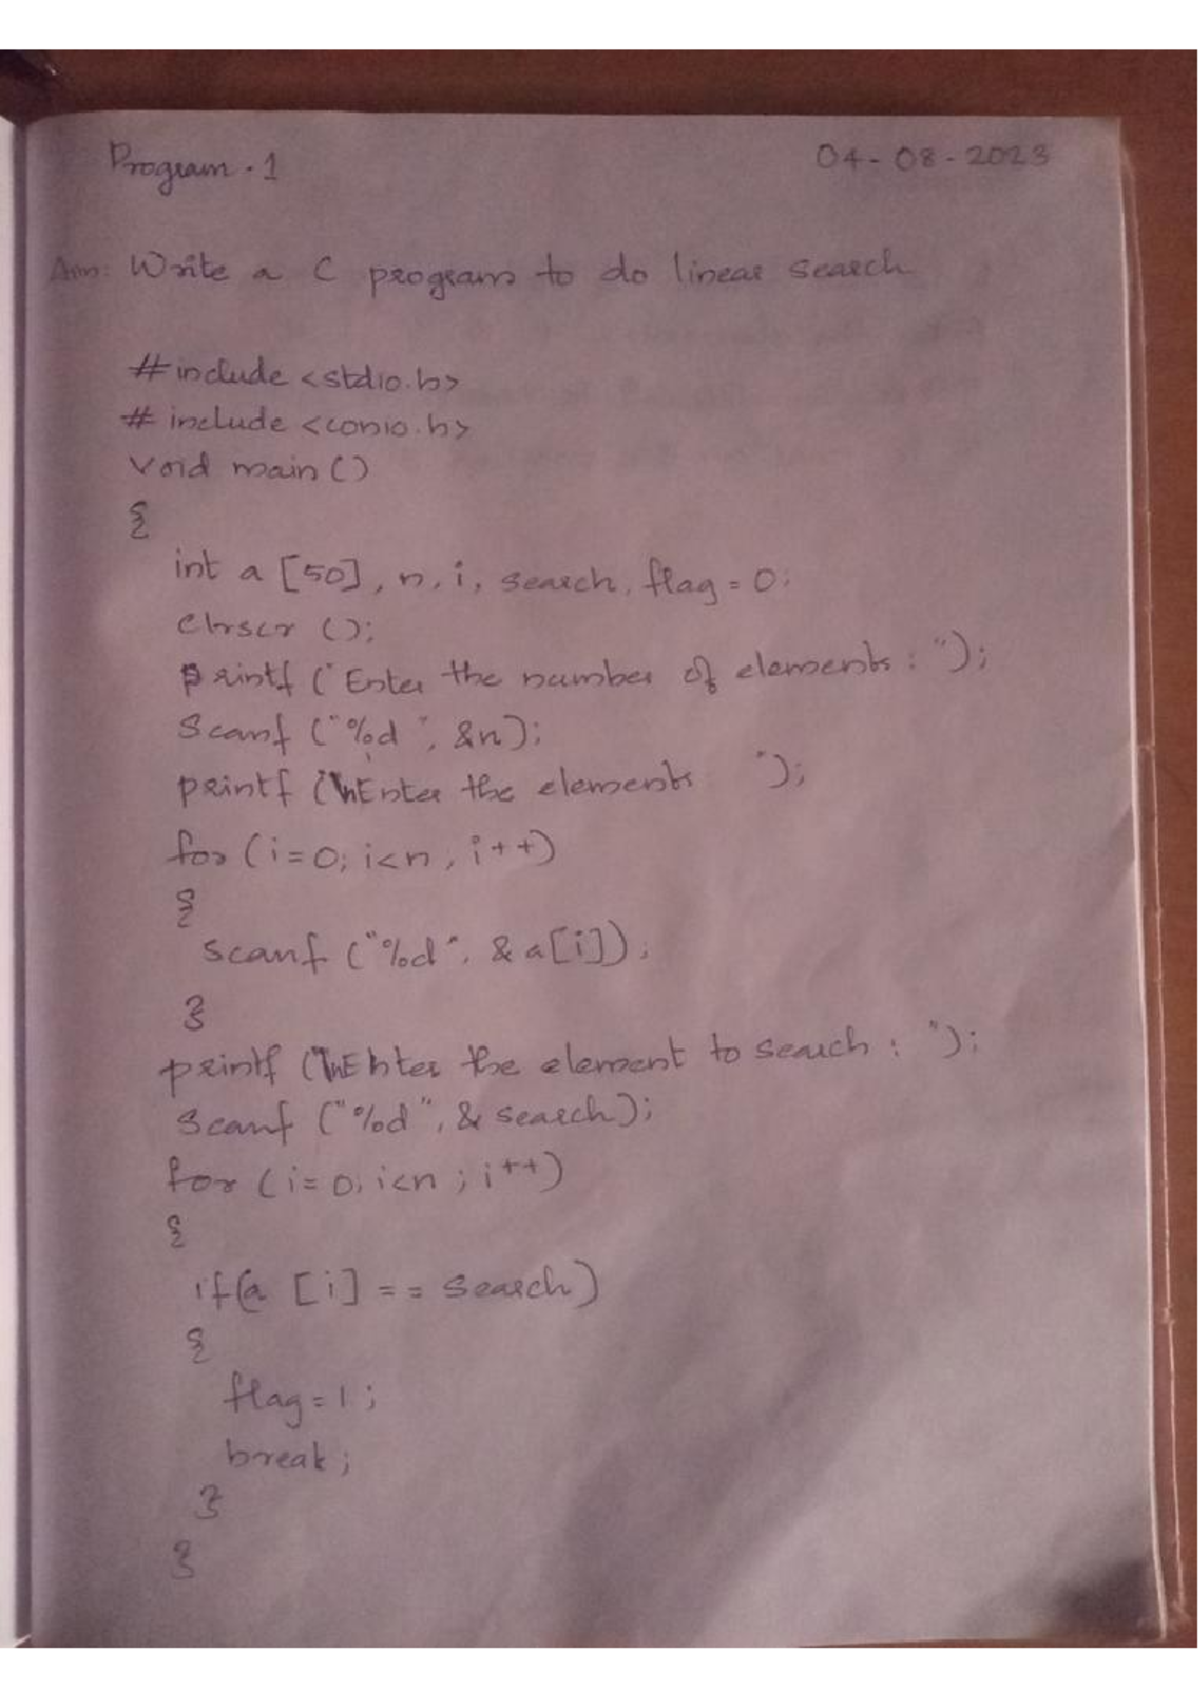 Program . 1
04-08-2023
Aim: Write a C program to do linear search
#include <stdio.h>
# include <conio.h>
void main ()
{
int a [50], n, i, search, flag = 0;
clrscr ();
printf ("Enter the number of elements : ");
Scanf ("%d", &n);
printf ("\nEnter the elements ");
for (i=0; i<n, i++)
{
scanf ("%d", & a[i]);
}
printf ("\nEnter the element to search : ");
Scanf ("%d", & search);
for (i=0; i<n ; i++)
{
if(a [i] == search)
{
flag=1;
break;
}
}